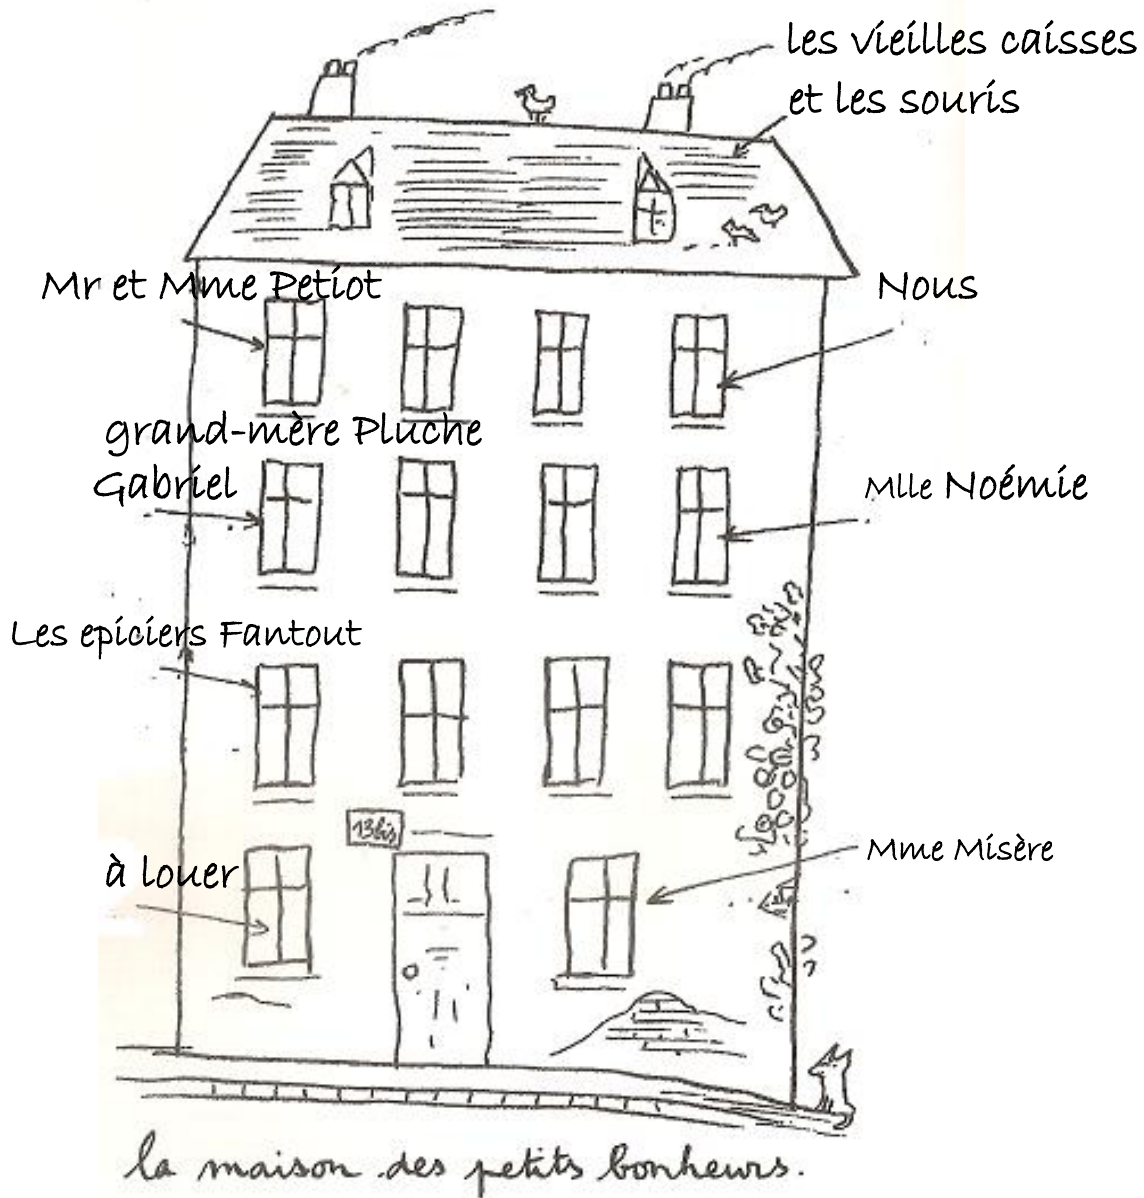 les vieilles caisses
et les souris
Mr et Mme Petiot
Nous
grand-mère Pluche
Gabriel
Mlle Noémie
Les epiciers Fantout
13bis
à louer
Mme Misère
la maison des petits bonheurs.